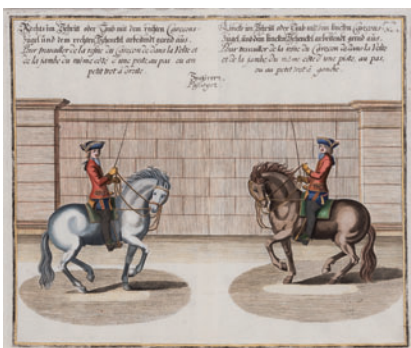 Rechts im Schritt oder Trab mit dem rechten Caveçons-
zügel und dem rechten Schenckel arbeitendt gerad aus.
Pour travailler de la resne du Caveçon de dans la Volte et
de la jambe du même côté d'une piste, au pas, ou au
petit trot à droite.
Lincks im Schritt oder Trab mit dem lincken Caveçons-
zügel, und dem lincken Schenckel arbeitendt gerad aus.
Pour travailler de la resne du Caveçon de dans la Volte
et de la jambe du même côté d'une piste, au pas,
ou au petit trot à gauche.